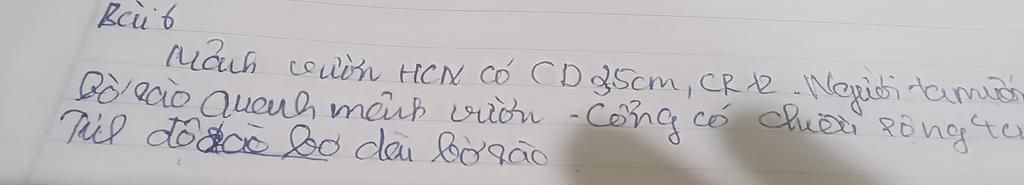 Bài 6
Mảnh vườn HCN có CD 35cm, CR 12. Người ta muốn
Bờ rào quanh mảnh vườn - Cổng có chiều rộng 4
Tính độ dài bờ rào